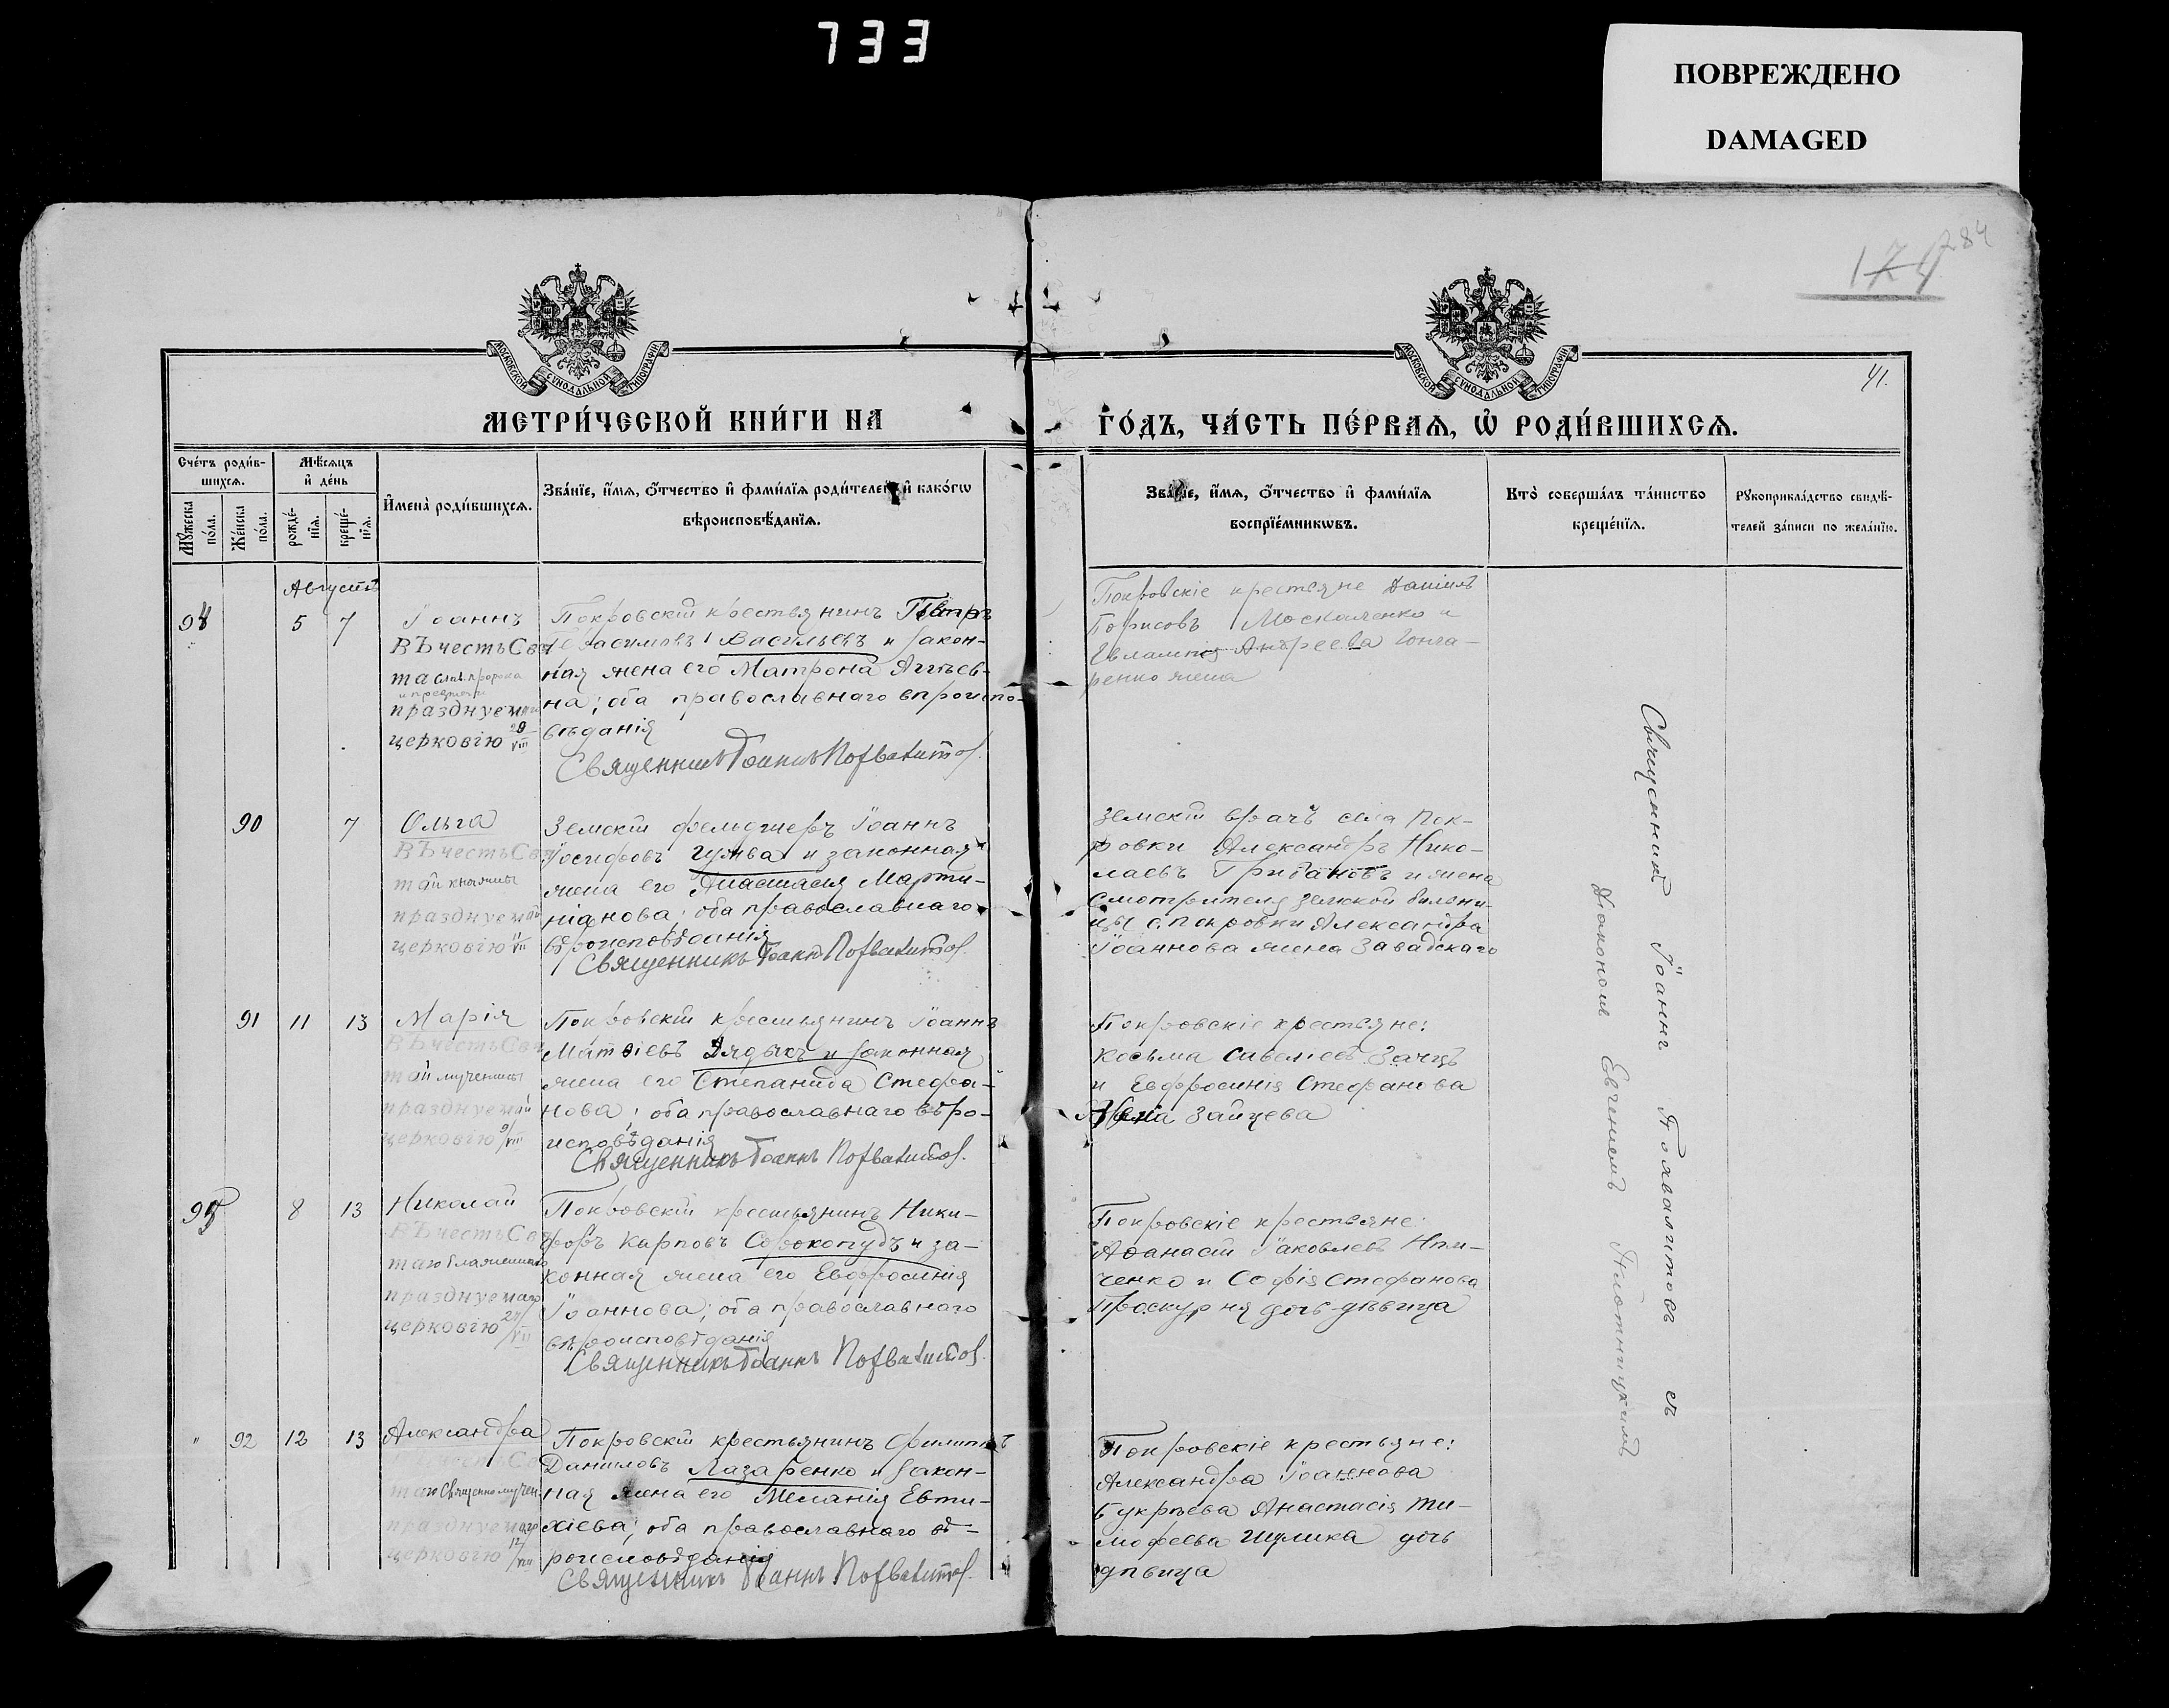 733
ПОВРЕЖДЕНО
DAMAGED
284
МОСКОВСКОЙ СѴНОДАЛЬНОЙ ТИПОГРАФІИ
МОСКОВСКОЙ СѴНОДАЛЬНОЙ ТИПОГРАФІИ
41.
МЕТРИ́ЧЕСКОЙ КНИ́ГИ НА
ГО́ДЪ, ЧА́СТЬ ПЕ́РВАѦ, Ѡ҆ РОДИ́ВШИХСѦ.
Сче́тъ роди́в-
шихсѧ.
Мѣ́сѧцъ
и҆ де́нь
Мꙋ́жеска
по́ла.
Же́нска
по́ла.
рожде́-
нїѧ.
креще́-
нїѧ.
И҆мена̀ роди́вшихсѧ.
Зва́нїе, и҆́мѧ, ѻ҆́тчество и҆ фами́лїѧ роди́телей, и҆ како́гѡ
вѣроисповѣ́данїѧ.
Зва́нїе, и҆́мѧ, ѻ҆́тчество и҆ фами́лїѧ
воспрїе́мникѡвъ.
Кто̀ соверша́лъ та́инство
креще́нїѧ.
Рꙋкоприкла́дство свидѣ́-
телей за́писи по жела́нїю.
Августъ
5 7
Іоаннъ
ВЪ честь Свя
та слав. пророка
и предтечи
празднуемаго
церковію 29/VIII
Покровскій крестьянинъ Петръ
Герасимовъ Васильевъ и закон-
ная жена его Матрона Аггѣев-
на; оба православнаго вѣроиспо-
вѣданія
Священникъ Іоаннъ Похвалитов.
Покровскіе крестьяне Даніилъ
Борисовъ Москаленко и
Евлампія Андреева Гонча-
ренко жена
90 7
Ольга
ВЪ честь Свя
той княжны
празднуемой
церковію 11/VII
Земскій фельдшеръ Іоаннъ
Іосифовъ Гужва и законная
жена его Анастасія Марти-
ніанова; оба православнаго
вѣроисповѣданія
Священникъ Іоаннъ Похвалитов.
Земскій врачъ села Пок-
ровки Александръ Нико-
лаевъ Грибановъ и жена
смотрителя земской больни-
цы с. Покровки Александра
Іоаннова жена Завадскаго
91 11 13
Марія
ВЪ честь Свя
той мученицы
празднуемой
церковію 9/VIII
Покровскій крестьянинъ Іоаннъ
Матѳіевъ Дядыкъ и законная
жена его Степанида Стефа-
нова; оба православнаго вѣро-
исповѣданія
Священникъ Іоаннъ Похвалитов.
Покровскіе крестьяне:
Косьма Савеліевъ Заецъ
и Евфросинія Стефанова
жена Зайцева
95 8 13
Николай
ВЪ честь Свя
таго блаженнаго
празднуемаго
церковію 27/VII
Покровскій крестьянинъ Ники-
форъ Карповъ Сорокопудъ и за-
конная жена его Евфросинія
Іоаннова; оба православнаго
вѣроисповѣданія
Священникъ Іоаннъ Похвалитов.
Покровскіе крестьяне:
Аѳанасій Іаковлевъ
ченко и Софія Стефанова
Проскурня дочь-дѣвица
" 92 12 13
Александра
таго священномучен.
празднуемаго
церковію 12/VIII
Покровскій крестьянинъ Филиппъ
Даниловъ Лазаренко и закон-
ная жена его Меланія Евти-
хіева; оба православнаго вѣ-
роисповѣданія
Священникъ Іоаннъ Похвалитов.
Покровскіе крестьяне:
Александра Іоаннова
Букрѣева Анастасія Ти-
мофеева Шулика дочь
дѣвица
Священникъ Іоаннъ Похвалитовъ съ
діакономъ Евгеніемъ Плотницкимъ